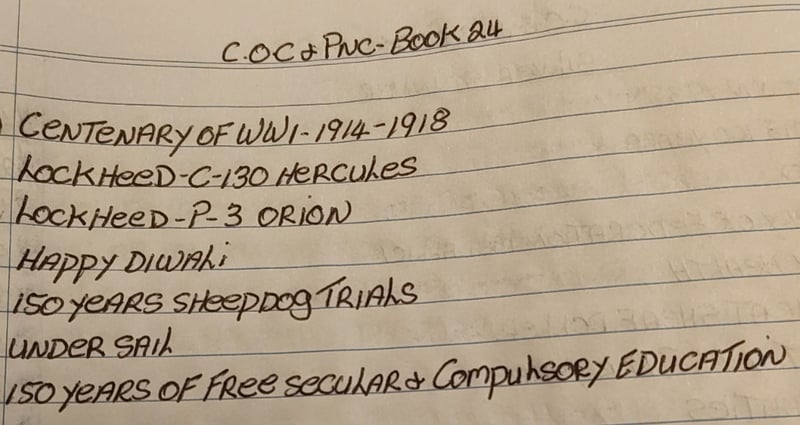 C.O.C & PNC - BOOK 24
CENTENARY OF WW1 - 1914 - 1918
LOCKHEED - C - 130 HERCULES
LOCKHEED - P - 3 ORION
HAPPY DIWALI
150 YEARS SHEEPDOG TRIALS
UNDER SAIL
150 YEARS OF FREE SECULAR & COMPULSORY EDUCATION